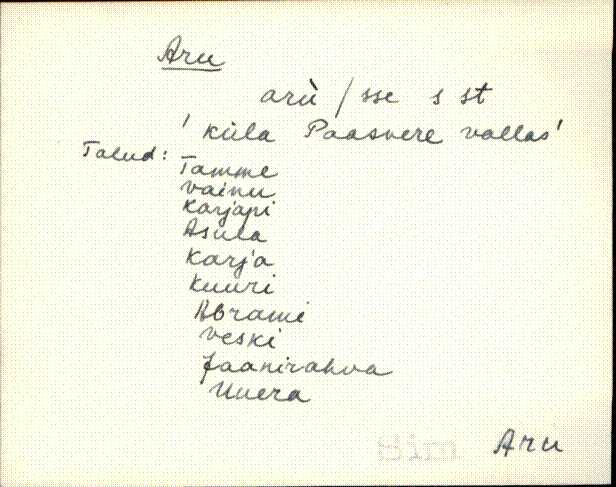 Aru
arù / sse s st
' küla Paasvere vallas'
Talud: Tamme
Vainu
Karjapi
Asula
Karja
Kuuri
Abrami
Veski
Jaanirahva
Uuera
Sim Aru